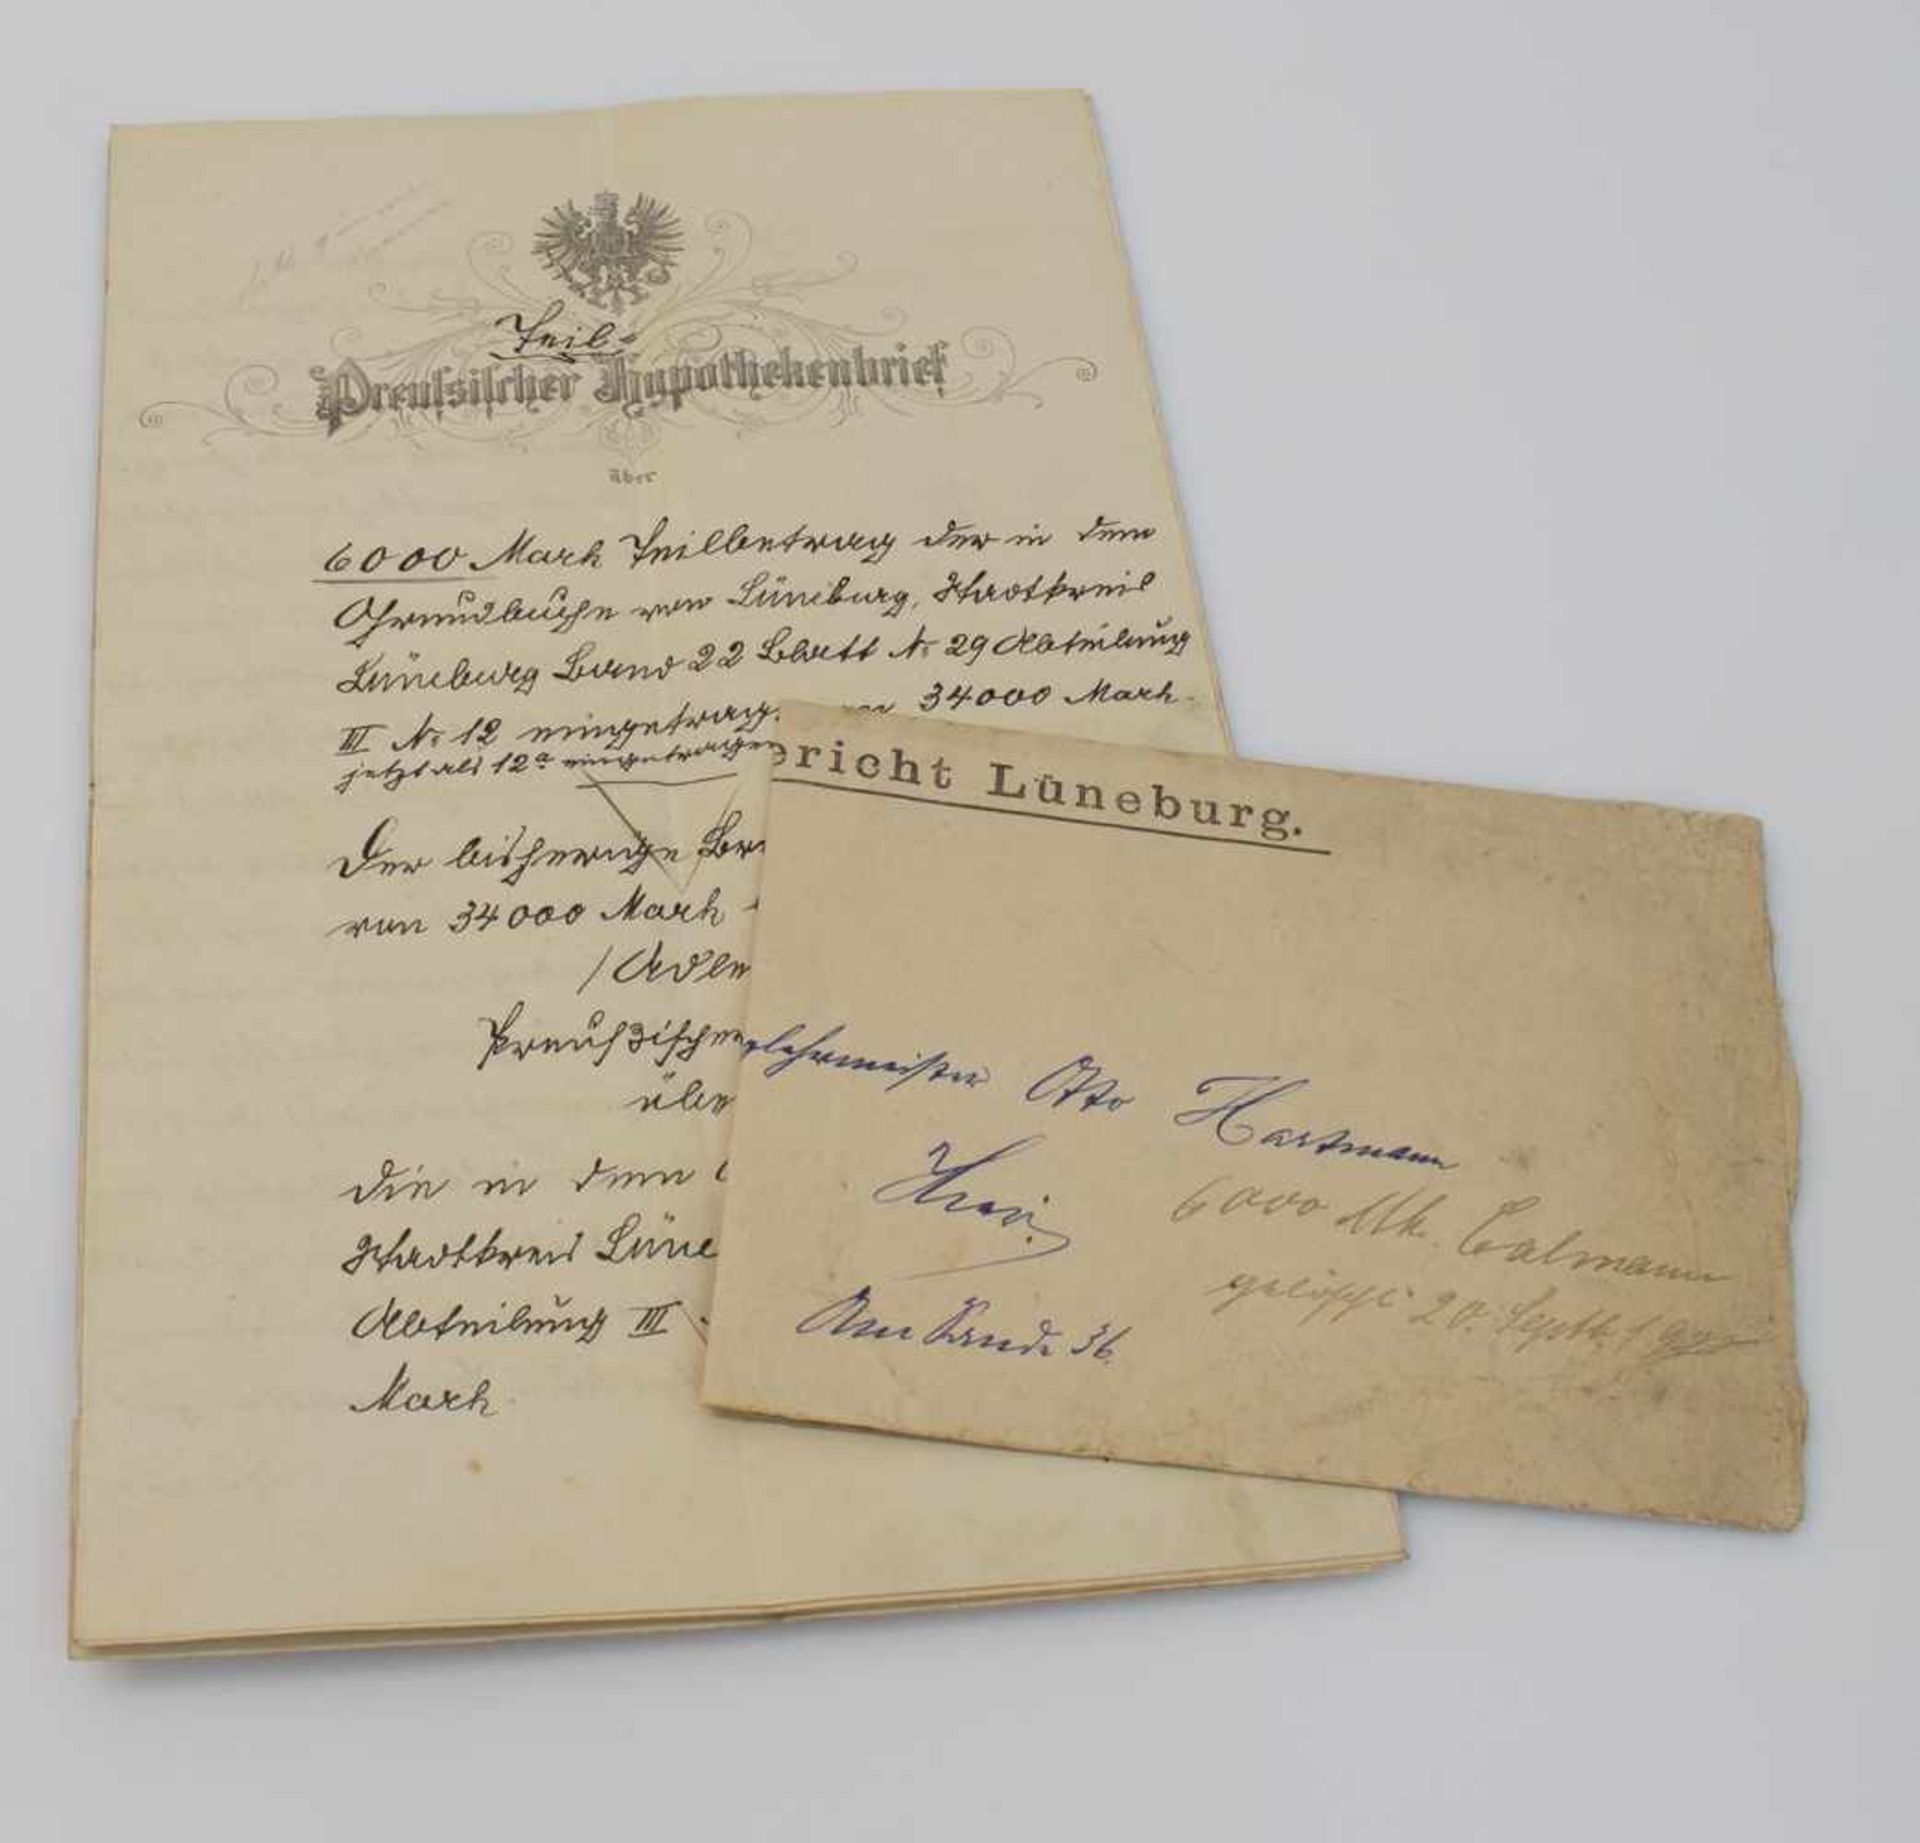 Teil-
Preussischer Hypothekenbrief
über
6000 Mark Teilbetrag der in dem
Grundbuche von Lüneburg, Stadtkreis
Lüneburg Band 22 Blatt Nr 29 Abteilung
III Nr. 12 eingetrag. 34000 Mark
jetzt als 12a eingetragen
Der bisherige
von 34000 Mark
Preußischer
die in dem
Stadtkreis Lüne
Abteilung III
Mark
ericht Lüneburg.
Otto Hartmann
Hier.
6000 Mk. Calmann
gelöscht 20. Septb.
Am Sande 36.